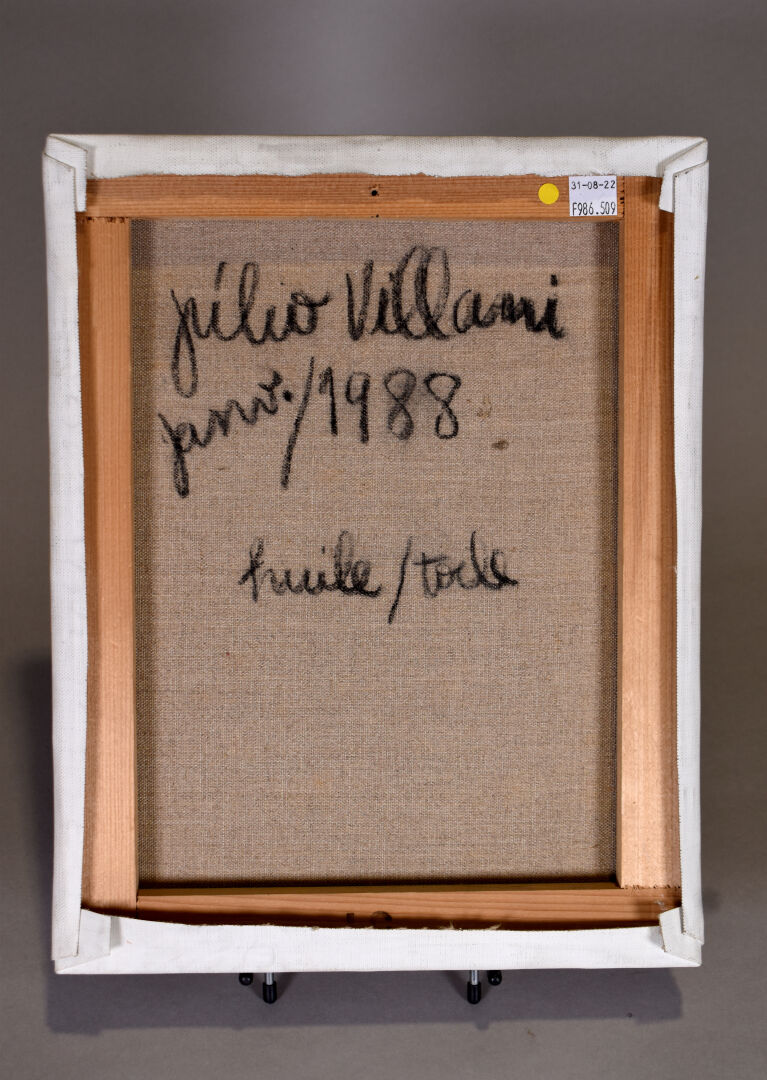 31-08-22
F986.509
júlio Villani
janv./1988
huile/toile